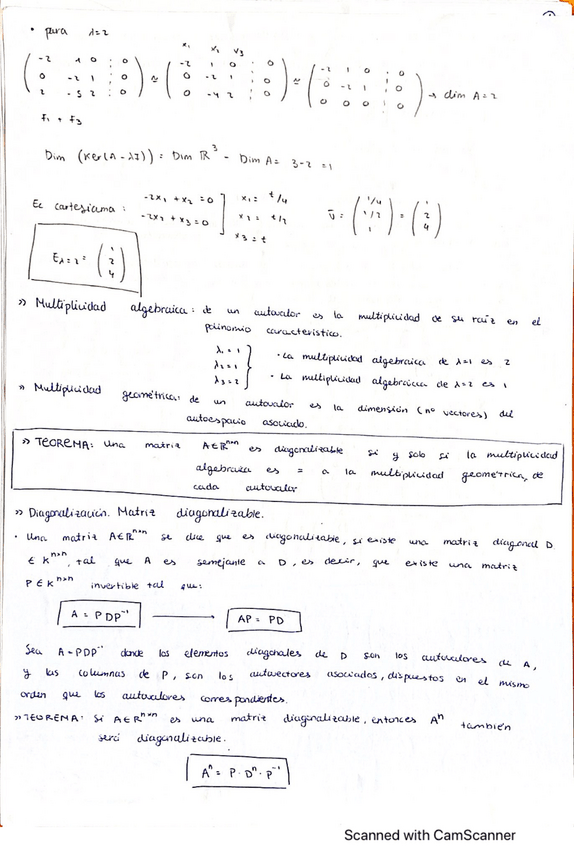 • para λ=2
x₁ x₂ x₃
(-2 1 0 : 0) (-2 1 0 : 0) (-2 1 0 : 0)
(0 -2 1 : 0) ≅ (0 -2 1 : 0) ≅ (0 -2 1 : 0) → dim A=2
(2 -5 2 : 0) (0 -4 2 : 0) (0 0 0 : 0)
F₁ + F₃
Dim (Ker(A-λI)) = Dim ℝ³ - Dim A = 3-2 = 1
Ec cartesiana: -2x₁ + x₂ = 0 ] x₁ = t/4 v̄ = (1/4) = (1)
-2x₂ + x₃ = 0 ] x₂ = t/2 (1/2) (2)
x₃ = t (1) (4)
E λ=2 = (1 2 4)
» Multiplicidad algebraica: de un autovalor es la multiplicidad de su raíz en el
polinomio característico.
λ₁ = 1
λ₂ = 1 · La multiplicidad algebraica de λ=1 es 2
λ₃ = 2 · La multiplicidad algebraica de λ=2 es 1
» Multiplicidad geométrica: de un autovalor es la dimensión (nº vectores) del
autoespacio asociado.
» TEOREMA: Una matriz A∈ℝⁿˣⁿ es diagonalizable si y solo si la multiplicidad
algebraica es = a la multiplicidad geométrica, de
cada autovalor
» Diagonalización. Matriz diagonalizable.
· Una matriz A∈ℝⁿˣⁿ se dice que es diagonalizable, si existe una matriz diagonal D
∈ Kⁿˣⁿ, tal que A es semejante a D, es decir, que existe una matriz
P ∈ Kⁿˣⁿ invertible tal que:
A = PDP⁻¹ → AP = PD
Sea A=PDP⁻¹ donde los elementos diagonales de D son los autovalores de A,
y las columnas de P, son los autovectores asociados, dispuestos en el mismo
orden que los autovalores correspondientes.
» TEOREMA: Si A∈ℝⁿˣⁿ es una matriz diagonalizable, entonces Aⁿ también
será diagonalizable.
Aⁿ = P · Dⁿ · P⁻¹
Scanned with CamScanner